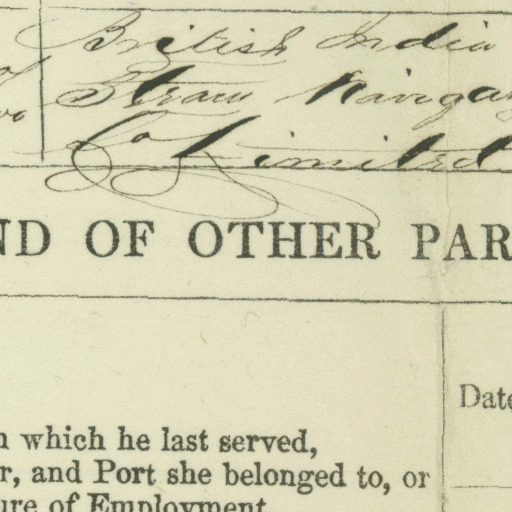 British India
Steam Naviga
Co Limited
ND OF OTHER PAR
Date
n which he last served,
r, and Port she belonged to, or
ure of Employment